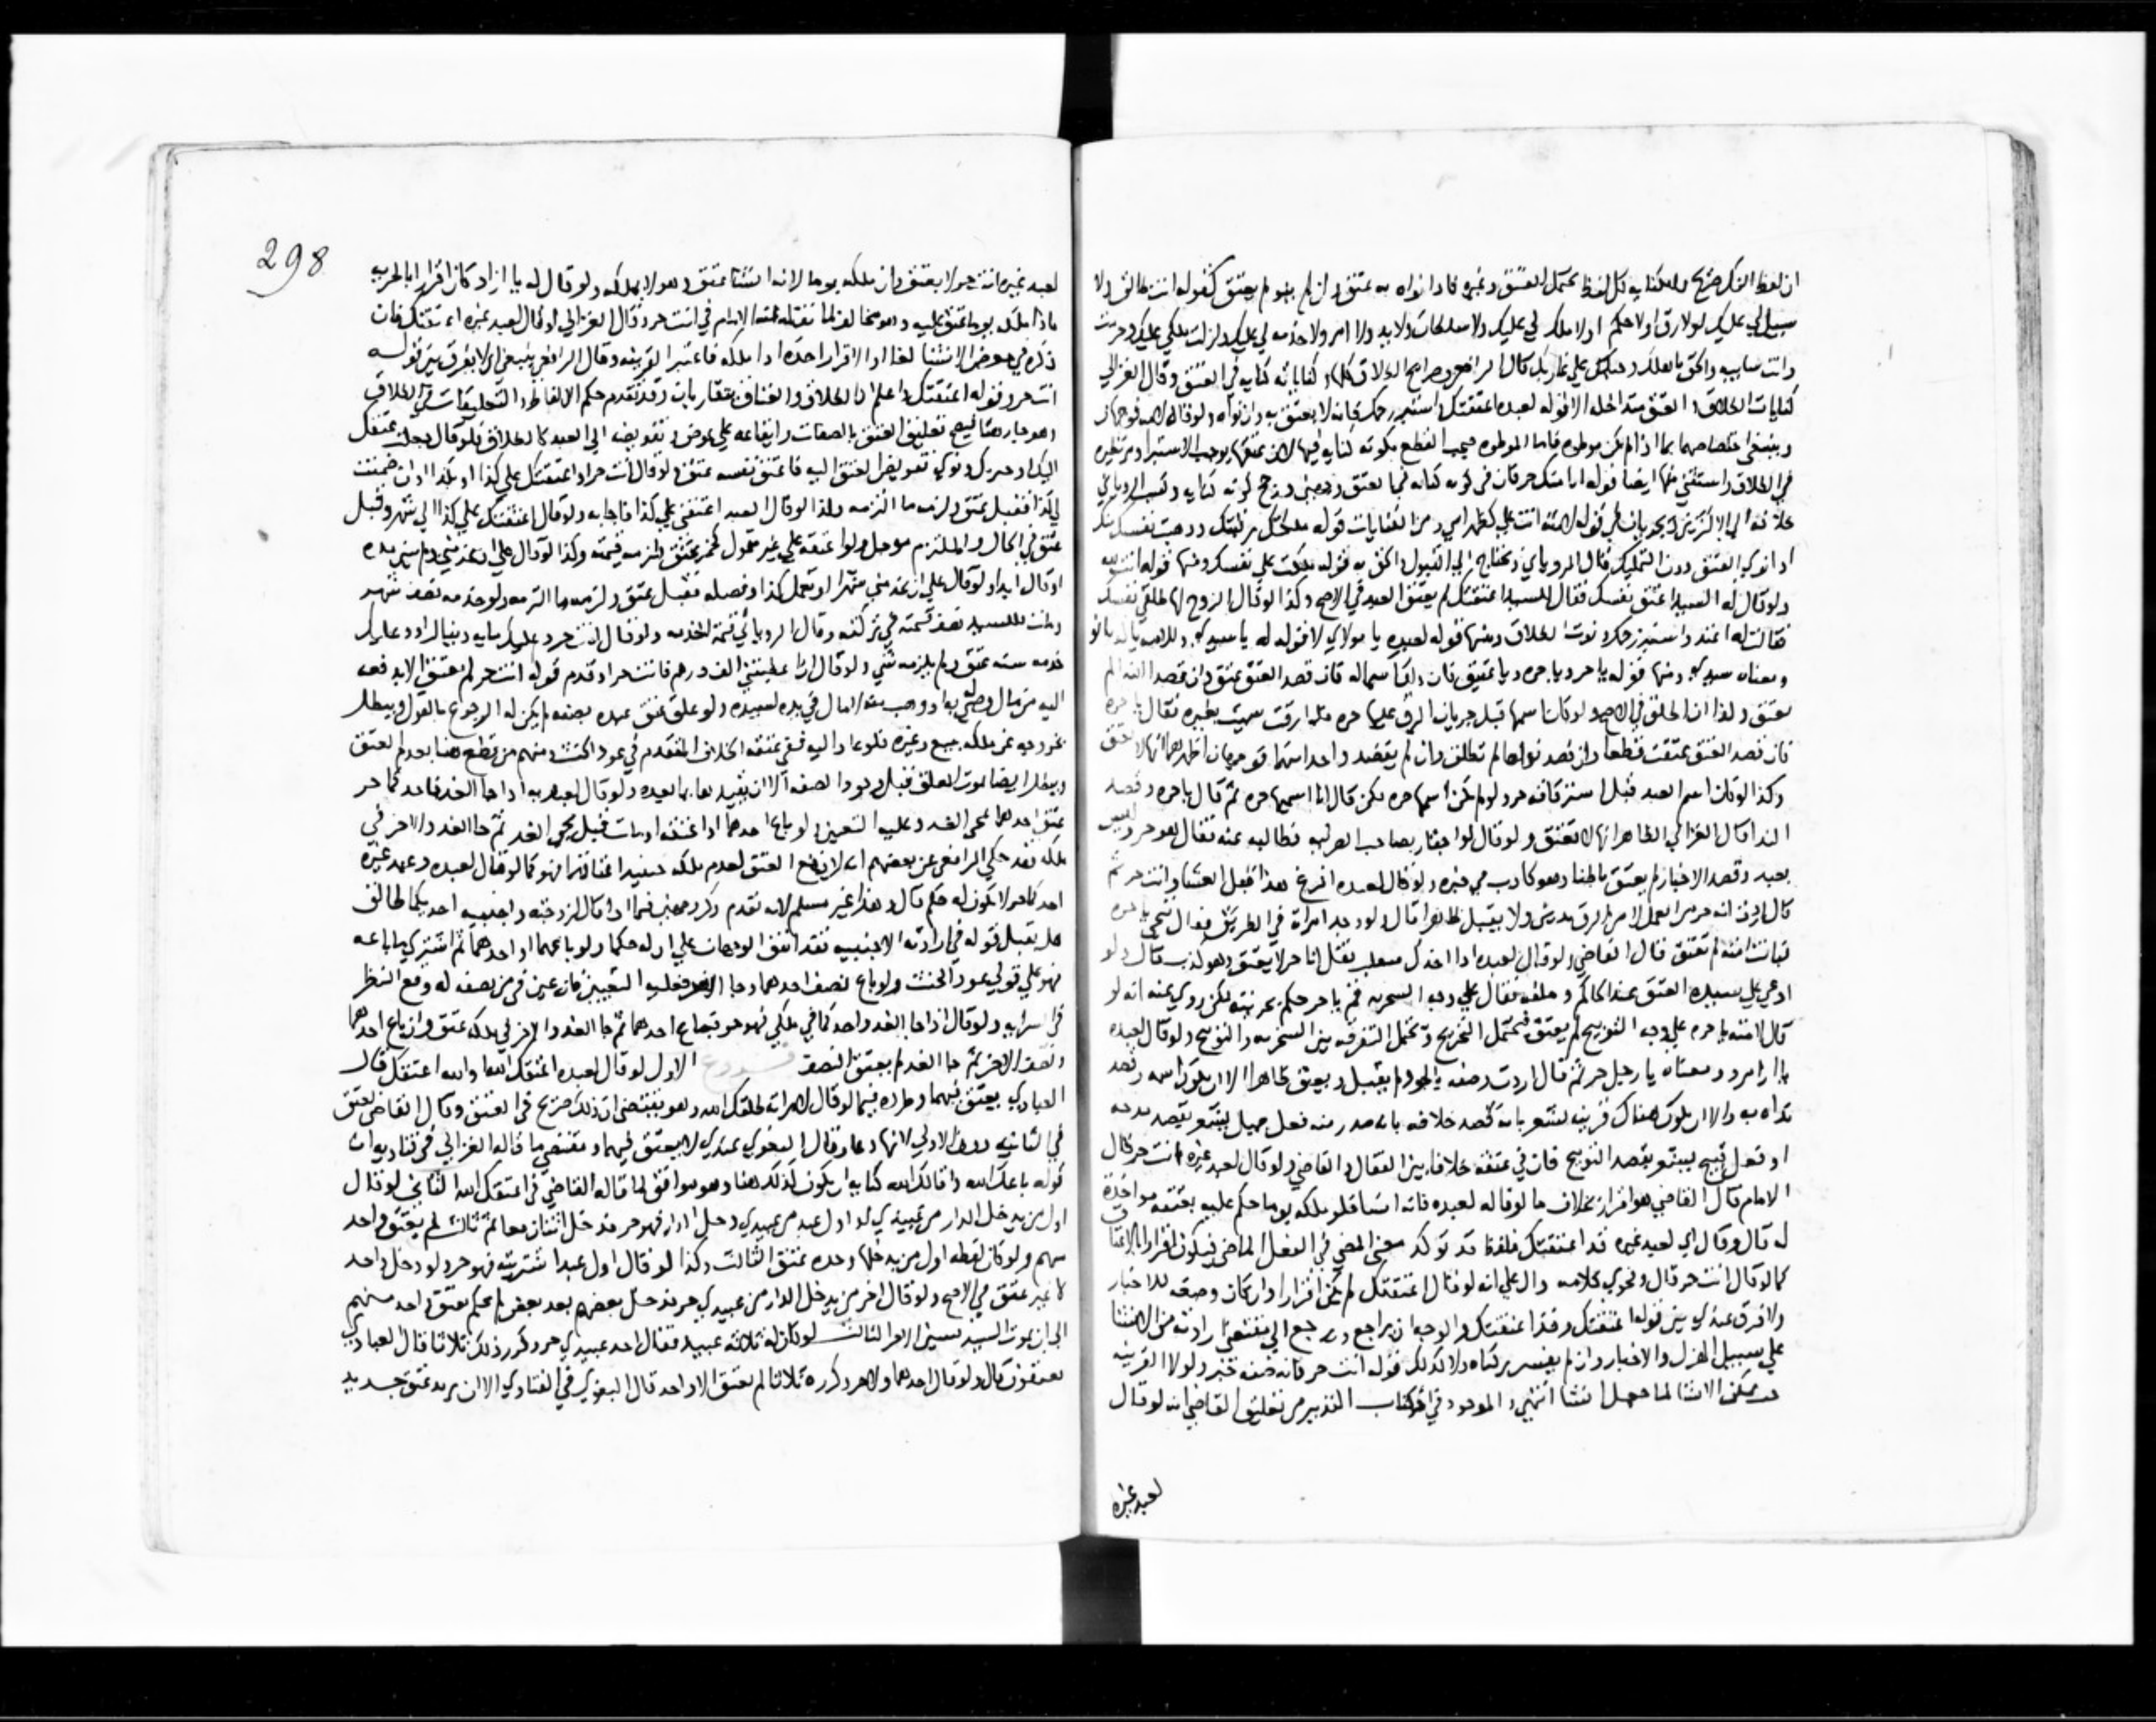 ان لفظ الفك صريح والكناية كل لفظ يحتمل العتق وغيره فاذا نواه به عتق وان لم ينو لم يعتق كقوله انت طالق ولا
سبيل لي عليك لولا رق اولا حكم اولا ملك لي عليك ولا سلطان ولا يد ولا امر ولا خدمه لي عليك وازلت ملكي عليك وحرمت
وانت سايبه والحق باهلك وحبلك علي غاربك قال الرافعي وصرايح الطلاق كلها وكناياته كنايه في العتق وقال الغزالي
كنايات الطلاق والعتق متداخله الا قوله لعبده اعتقتك استبر رحمك فانه لا يعتق به وان نواه ولو قاله لامته فوجهان
وينبغي اختصاصهما بما اذا لم تكن موطوه فاما الموطوه فيجب القطع بكونه كنايه فيها لان عتقها يوجب الاستبرا
في الطلاق واستثني منها ايضا قوله انا منك حر فان في كونه كنايه فيما يعتق وجهين
ادا نوي العتق دون التمليك قال الروياني ويحتاج الي القبول والحق به قوله ملكت علي نفسك ومنها قوله انت لله
ولو قال له السيد اعتق نفسك فقال للسيد اعتقتك لم يعتق العبد في الاصح وكذا لو قال الزوج لها طلقي نفسك
فقالت له اعتد واستبر رحمك ونوت الطلاق ومنها قوله لعبده يا مولاي لا قوله له يا سيدي
ومعناه سيدي ومنها قوله يا حر ويا حره ويا عتيق فان ذلك اسماله فان قصد العتق عتق وان قصد الندا لم
يعتق ولذا ان اطلق في الاصح ولو كان اسمها قبل جريان الرق عليها حره فلما ارقت سميت بغيره فقال يا حره
فان قصد العتق عتقت قطعا وان قصد نداها لم تطلق وان لم يقصد واحدا منهما فوجهان اظهرهما انها لا تعتق
وكذا لو كان اسم العبد قبل استرقاقه حر ولو لم يكن اسمها حره لكن قال انا اسميها حره ثم قال يا حره وقصد
الندا قال الغزالي الظاهر انها لا تعتق ولو قال لو اجتاز بصاحب المرتبه فطالبه عنه فقال هو حر وليس
بعبد وقصد الاخبار لم يعتق باطنا وهو كاذب في خبره ولو قال لعبده افرغ هذا قبل العشا وانت حر ثم
قال اردت انه حر من العمل لا من الرق يدين ولا يقبل ظاهرا قال ولو وجد امراة في الطريق فقال تنحي يا حره
فبانت امته لم تعتق قال القاضي ولو قال لعبده اذا اخذك متغلب فقل انا حر لا يعتق وهو كذب قال ولو
ادعي علي سيده العتق عند الحاكم وحلفه فقال علي وجه السخريه قم يا حر حكم بحريته لكن روي عنه انه لو
قال لامته يا حره علي وجه التوبيخ لم يعتق فيحتمل التخريج ويحتمل التفرقه بين السخريه والتوبيخ ولو قال لعبده
يا ازامرد ومعناه يا رجل حر ثم قال اردت وصفه بالجود لم يقبل ويعتق ظاهرا الا ان يكون اسمه وقصد
نداه به والا ان يكون هناك قرينه تشعر بانه قصد خلافه بان صدر منه فعل جميل يشعر بقصد مدحه
او فعل قبيح يشعر بقصد التوبيخ فان في عتقه خلافا بين القفال والقاضي ولو قال لعبد غيره انت حر قال
الامام قال القاضي هو اقرار بخلاف ما لو قاله لعبده فانه انشا فلو ملكه يوما حكم عليه بعتقه مواخذة
له قال وقال اي لعبد غيره قد اعتقتك فلفظة قد توكد معني المضي في الفعل الماضي فيكون اقرارا بالاعتاق
كما لو قال انت حر قال وفحوي كلامه دال علي انه لو قال اعتقتك لم يكن اقرارا وان كان وصفه للاخبار
ولا فرق عندي بين قوله اعتقتك وقد اعتقتك والوجه ان يراجع ويرجع الي مقتضي ارادته من الانشا
علي سبيل الهزل والاخبار وان لم يفسر تركناه ولا كذلك قوله انت حر فانه صفة خبر ولولا القرينه
حيث يمكن الانشا لما جعل انشا انتهي والموجود في كتاب التدبير من تعليق القاضي انه لو قال
لعبد غيره
298
لعبد غيره انت حر لا يعتق وان ملكه يوما لانه انشا عتق وهو لا يملكه ولو قال له يا ازاد كان اقرارا بالحريه
فاذا ملكه يوما عتق عليه وهو مخالف لما نقله عنه الامام في انت حر وقال الغزالي لو قال لعبد غيره اعتقتك فان
ذكره في معرض الانشا لغا او الاقرار اخذ اذا ملكه فاعتبر القرينه وقال الرافعي ينبغي ان لا يفرق بين قوله
انت حر وقوله اعتقتك واعلم ان الطلاق والعتاق يتقاربان وقد تقدم حكم الالفاظ والتعليقات في الطلاق
وهو جار هنا فيصح تعليق العتق بالصفات وايقاعه علي عوض وتفويضه الي العبد كالطلاق فلو قال جعلت عتقك
اليك او حريتك ونوي تفويض العتق اليه فاعتق نفسه عتق ولو قال انت حر او اعتقتك علي كذا او بكذا او ان ضمنت
لي كذا فقبل عتق ولزمه ما التزمه ولذا لو قال العبد اعتقني علي كذا فاجابه ولو قال اعتقتك علي كذا الي شهر وقبل
عتق في الحال والملتزم موجل ولو اعتقه علي غير متمول كخمر عتق ولزمه قيمته وكذا لو قال علي ان تخدمني ولم يبين مدة
او قال ابدا ولو قال علي ان تخدمني شهرا او تعمل كذا وفصله فقبل عتق ولزمه ما التزمه ولو خدمه نصف شهر
ومات للسيد نصف قيمته في تركته وقال الروياني قيمة الخدمه ولو قال انت حر وعليك مايه دينار او وعليك
خدمه سنه عتق ولم يلزمه شي ولو قال ان اعطيتني الف درهم فانت حر او قدم قوله انت حر لم يعتق الا بدفعه
اليه من مال وصي به له او وهب منه لا مال في يده لسيده ولو علق عتق عبده بصفه لم يكن له الرجوع بالقول ويبطل
بخروجه عن ملكه ببيع وغيره فلو عاد اليه ففي عتقه الخلاف المتقدم في عود الحنث ومنهم من قطع هنا بعدم العتق
ويبطل ايضا بموت المعلق قبل وجود الصفه الا ان يقيد بما بعده ولو قال لعبديه اذا جا الغد فاحدكما حر
عتق احدهما بمجي الغد وعليه التعيين ولو باع احدهما او اعتقه او مات قبل مجي الغد ثم جا الغد والاخر في
ملكه فقد حكي الرافعي عن بعضهم انه لا يقع العتق لعدم ملكه حينئذ اعتاقهما فهو كما لو قال لعبده وعبد غيره
احدكما حر لا يكون له حكم قال وهذا غير مسلم لانه تقدم ذكر وجهين فيما اذا قال لزوجته واجنبيه احديكما طالق
هل يقبل قوله في ارادته الاجنبيه فقد اتفق الوجهان علي ان له حكما ولو باعهما او احدهما ثم اشتري ما باعه
فهو علي قولي عود الحنث ولو باع نصف احدهما وجا الغد فعليه التعيين فان عين في من نصفه له وقع النظر
في السرايه ولو قال اذا جا الغد واحدكما في ملكي فهو حر فباع احدهما ثم جا الغد والاخر في ملكه عتق وان باع احدهما
ونصف الاخر ثم جا الغد لم يعتق النصف فــــروع الاول لو قال لعبده اعتقك الله او الله اعتقك قال
العبادي يعتق فيهما وطرده فيما لو قال لامراته طلقك الله وهو يقتضي ان ذلك صريح في العتق وقال القاضي يعتق
في الثانيه دون الاولي لانها دعا وقال البغوي عندي لا يعتق فيهما ومقتضي ما قاله الغزالي في فتاويه ان
قوله باعك الله واقالك الله كنايه ان يكون كذلك هنا وهو موافق لما قاله القاضي في اعتقك الله الثاني لو قال
اول من يدخل الدار من عبيدي او اول عبد من عبيدي دخل الدار فهو حر فدخل اثنان معا ثم ثالث لم يعتق واحد
منهم ولو كان لفظه اول من يدخلها وحده عتق الثالث وكذا لو قال اول عبد اشتريته فهو حر ولو دخل واحد
لا غير عتق في الاصح ولو قال اخر من يدخل الدار من عبيدي حر فدخل بعضهم بعد بعض لم يحكم بعتق واحد منهم
الي ان يموت السيد فيتبين الاخر الثالث لو كان له ثلاثه عبيد فقال احد عبيدي حر وكرر ذلك ثلاثا قال العبادي
يعتقون قال ولو قال احدهما ولاحر وكرره ثلاثا لم يعتق الا واحد قال البغوي في الفتاوي الا ان يريد عتق جديد